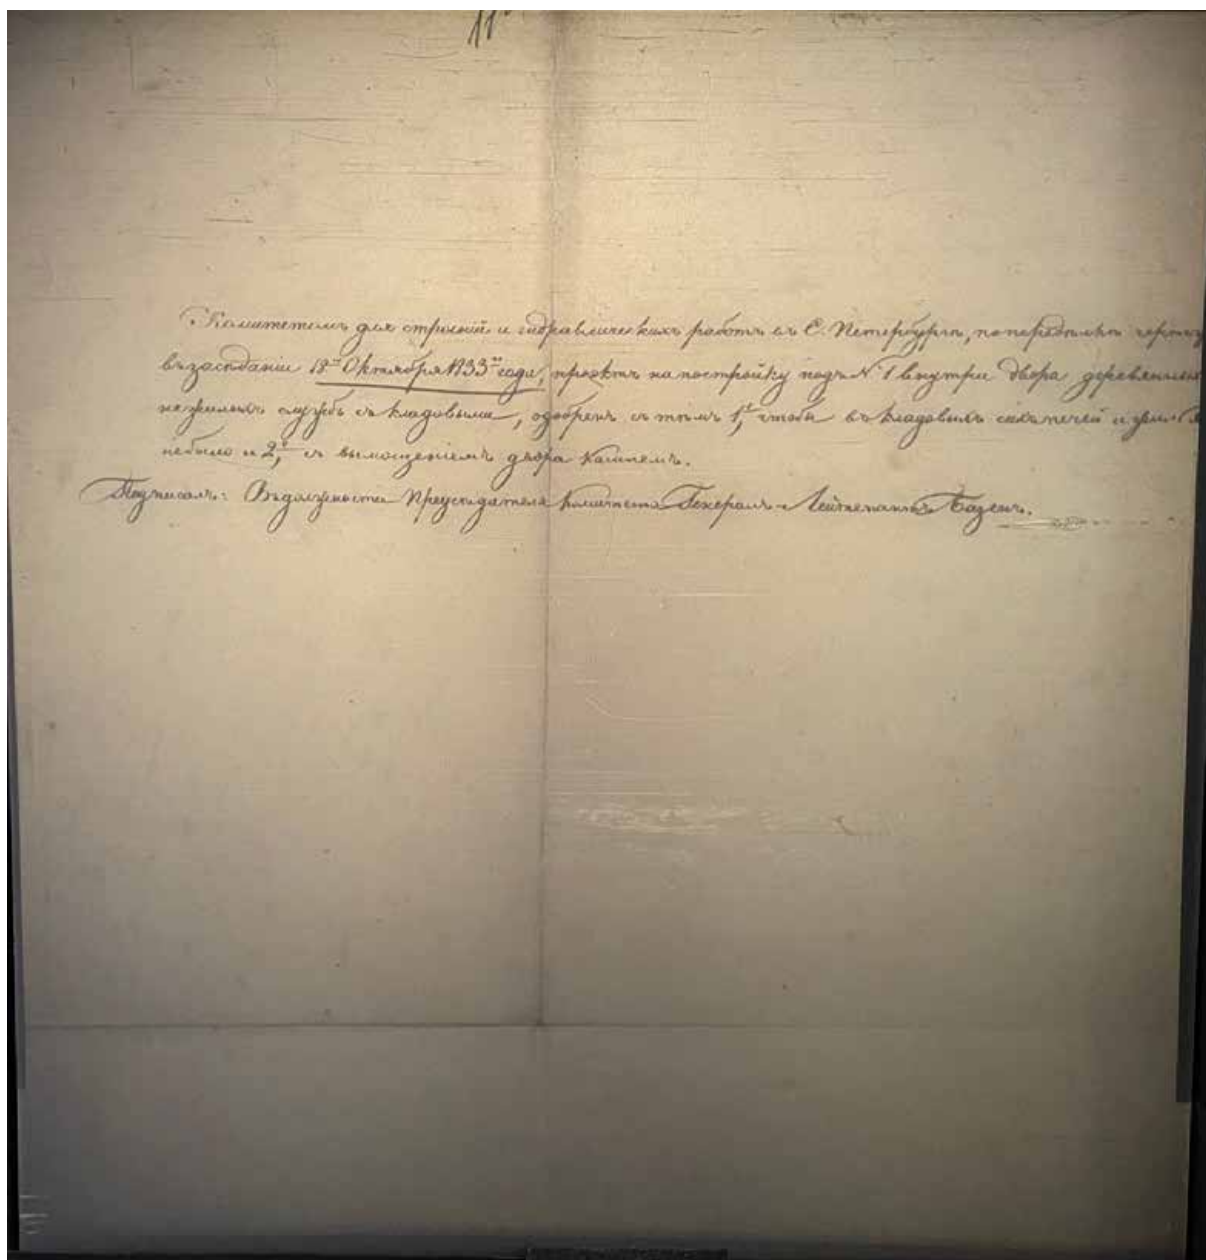 11
Комитетомъ для строеній и гидравлическихъ работъ въ С. Петербургѣ, по передѣлкѣ чертежа
въ засѣданіи 18го Октября 1833го года, проэктъ на постройку подъ № 1 внутри двора деревянныхъ
нежилыхъ службъ съ кладовыми, одобренъ съ тѣмъ 1е, чтобы въ кладовыхъ сихъ печей и
небыло и 2е, съ вымощеніемъ двора камнемъ.
Подписалъ: Въ должности Предсѣдателя Комитета Генералъ-Лейтенантъ Базенъ.